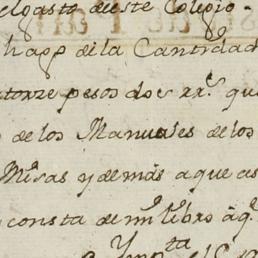 elgasto deeste Colegio.
hago de la Cantidad
atorze pesos dos rr.^s que
de los Manuales de los
Misas y demás a que as
y consta de mi libro à q